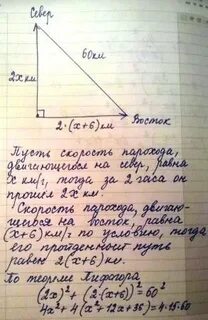 Север
60км
2х км
2·(х+6)км
Восток
Пусть скорость парохода,
двигающегося на север, равна
х км/г, тогда за 2 часа он
прошел 2х км.
Скорость парохода, двигаю-
щегося на восток, равна
(х+6)км/г по условию, тогда
его пройденный путь
равен 2(х+6)км.
По теореме Пифагора
(2х)²+(2·(х+6))²=60²
4х²+4(х²+12х+36)=4·15·60